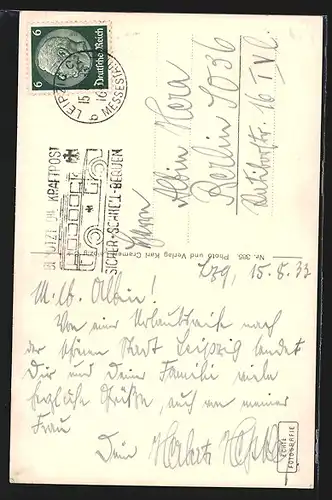 6
Deutsches Reich
LEIPZIG
15.
MESSESTADT
BENUTZT DIE KRAFTPOST
SICHER-SCHNELL-BEQUEM
Herrn
Albin Hera
Berlin SO36
16 IV l.
Nr. 365. Photo und Verlag Karl Cramer, Leipzig
Lzg, 15.8.33
M. lb. Albin!
Von einer Urlaubsreise nach
der schönen Stadt Leipzig sendet
Dir und Deiner Familie viele
herzliche Grüße, auch von meiner
Frau
Dein Herbert
ECHTE
FOTOGRAFIE